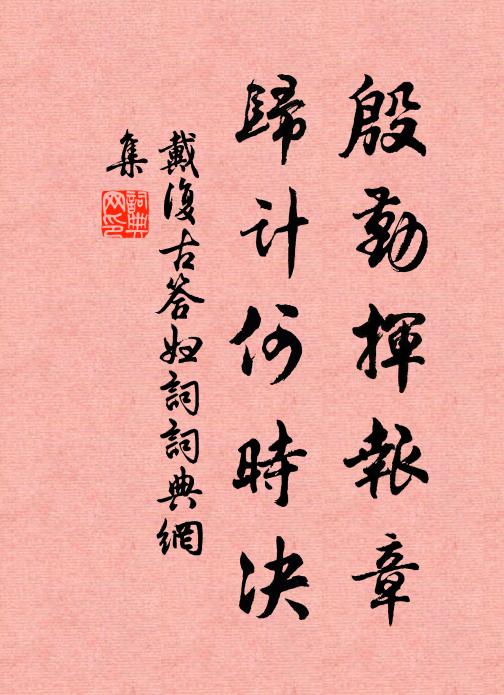 殷勤揮報章
歸計何時決
戴復古答妇詞詞典網
集
詞典
网印